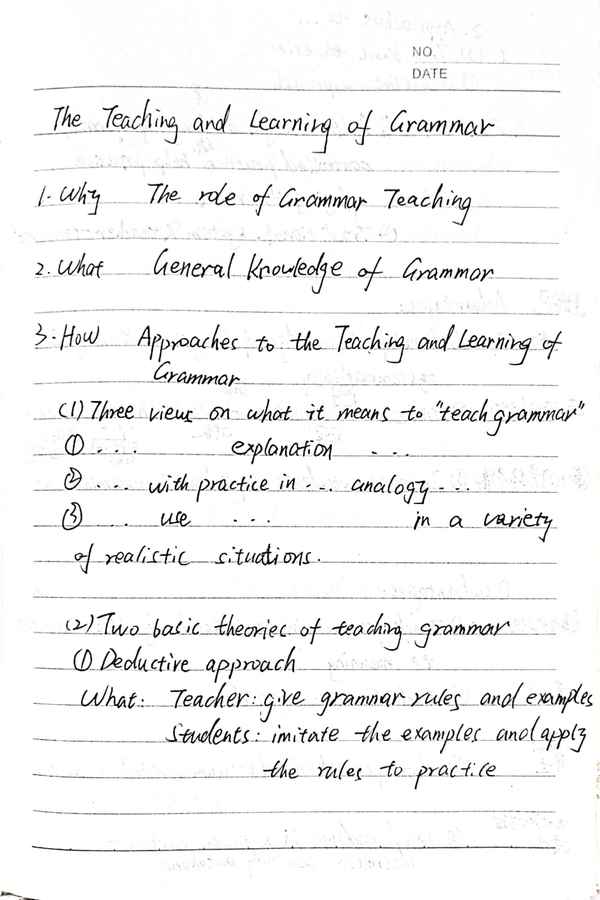 NO.
DATE
The Teaching and Learning of Grammar
1. Why The role of Grammar Teaching
2. What General Knowledge of Grammar
3. How Approaches to the Teaching and Learning of
Grammar
(1) Three views on what it means to "teach grammar"
① ... explanation ...
② ... with practice in ... analogy ...
③ ... use ... in a variety
of realistic situations.
(2) Two basic theories of teaching grammar
① Deductive approach
What: Teacher: give grammar rules and examples
Students: imitate the examples and apply
the rules to practice